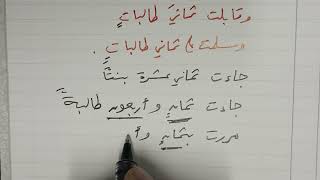 وقابلت ثمانيَ طالباتٍ
وسلمت على ثماني طالباتٍ .
جاءت ثماني عشرة بنتًا
جاءت ثمانٍ وأربعون طالبةً
مررت بثمانٍ وأ